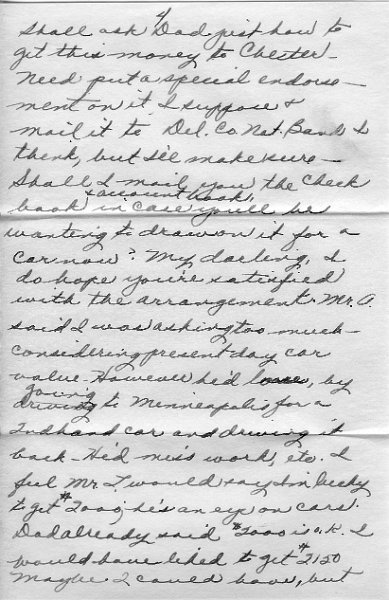 4
Shall ask Dad just how to
get this money to Chester –
Need put a special endorse-
ment on it I suppose &
mail it to Del. Co. Nat. Bank I
think, but I'll make sure –
Shall I mail you the check
& account book,
book in case you'll be
wanting to draw on it for a
car now? My darling, I
do hope you're satisfied
with the arrangement. Mr. A.
said I was asking too much
considering present day car
value. However he'd lose, by
going
driving to Minneapolis for a
2ndhand car and driving it
back – He'd miss work, etc. I
feel Mr. T. would say I'm lucky
to get $2000; he's an eye on cars!
Dad already said $2000 is o.k. I
would have liked to get $2150
Maybe I could have, but